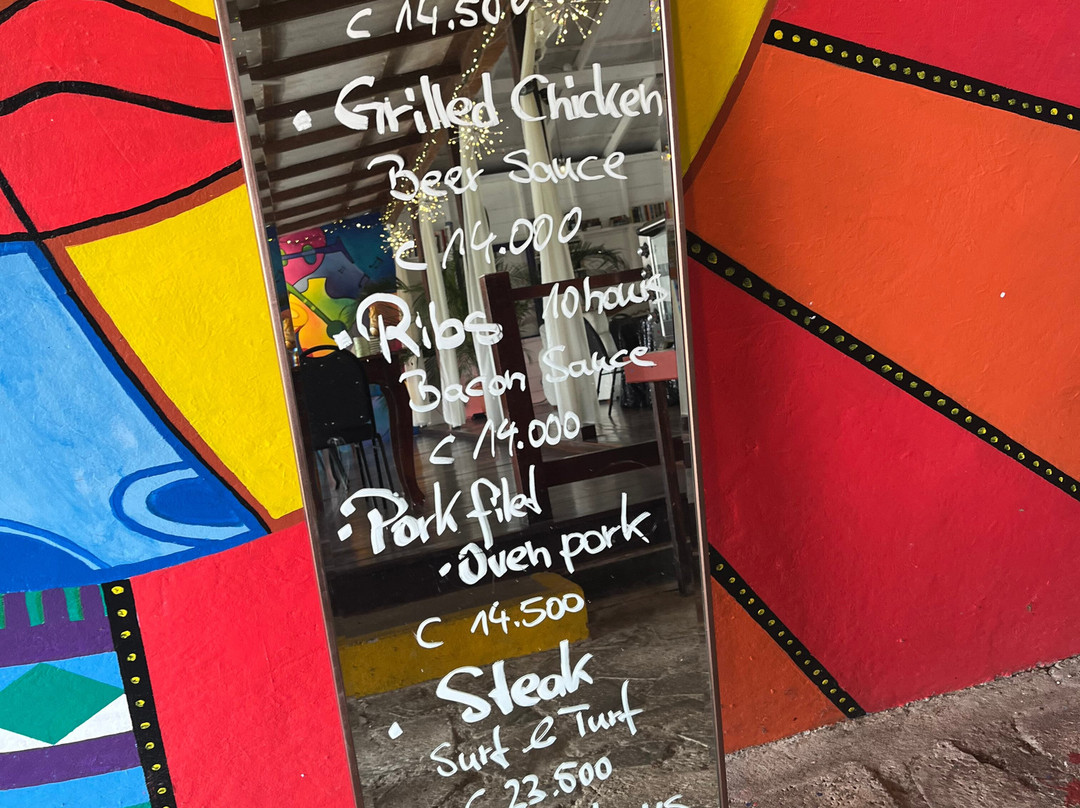 C 14.500
• Grilled Chicken
Beer Sauce
C 14.000
• Ribs 10 hours
Bacon Sauce
C 14.000
• Pork filet
• Oven pork
C 14.500
• Steak
Surf & Turf
C 23.500